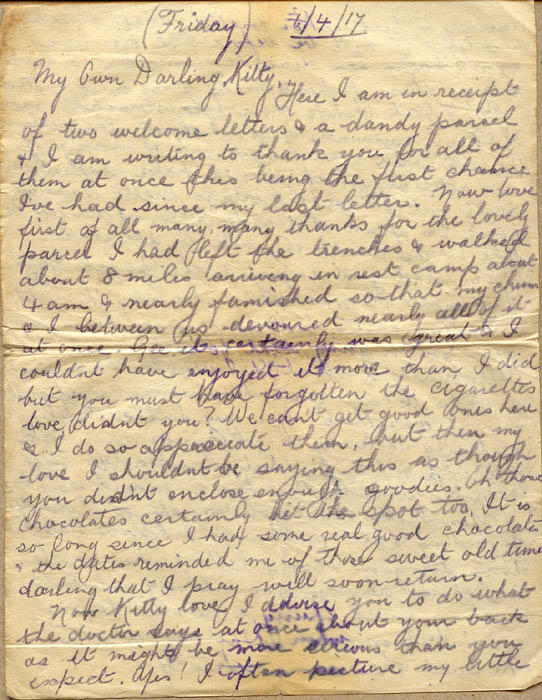 (Friday) 6/4/17
My Own Darling Kitty,
Here I am in receipt
of two welcome letters & a dandy parcel
& I am writing to thank you for all of
them at once this being the first chance
I've had since my last letter. Now love
first of all many, many thanks for the lovely
parcel I had left the trenches & walked
about 8 miles arriving in rest camp about
4 am & nearly famished so that my chum
& I between us devoured nearly all of it
at once. Gee it certainly was great & I
couldn't have enjoyed it more than I did
but you must have forgotten the cigarettes
love didn't you? We can't get good ones here
& I do so appreciate them, but then my
love I shouldn't be saying this as though
you didn't enclose enough goodies. Oh those
chocolates certainly hit the spot too, It is
so long since I had some real good chocolates
& the dates reminded me of those sweet old times
darling that I pray will soon return.
Now Kitty love, I advise you to do what
the doctor says at once about your back
as it might be more serious than you
expect. Yes! I often picture my little